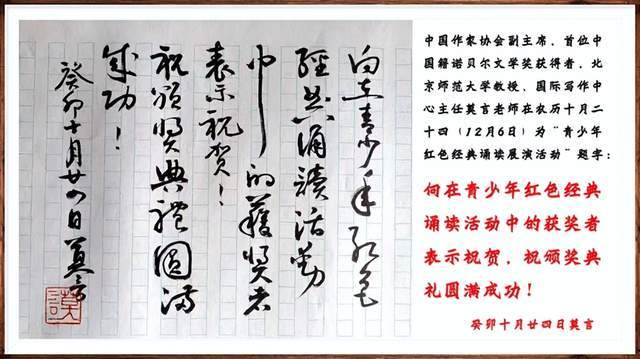 向在青少年红色
經典诵讀活動
中的獲獎者
表示祝賀！
祝頒獎典禮圓滿
成功！
癸卯十月廿四日莫言
中国作家协会副主席、首位中
国籍诺贝尔文学奖获得者、北
京师范大学教授、国际写作中
心主任莫言老师在农历十月二
十四（12月6日）为“青少年
红色经典诵读展演活动”题字：
向在青少年红色经典
诵读活动中的获奖者
表示祝贺，祝颁奖典
礼圆满成功！
癸卯十月廿四日莫言